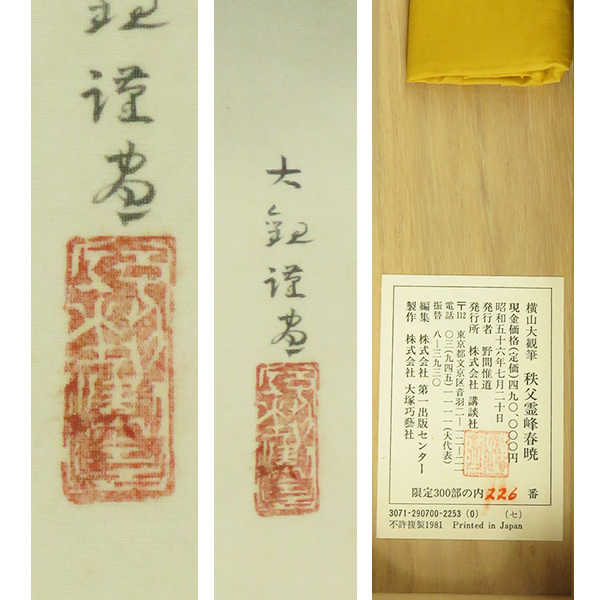 観
謹畫
大観謹畫
横山大観筆　秩父霊峰春暁
現金価格(定価)四九〇、〇〇〇円
昭和五十六年七月二十日
発行者　野間惟道
発行所　株式会社　講談社
〒112　東京都文京区音羽二—一二—二一
電話　〇三(九四五)一一一一(大代表)
振替　八—三九三〇
編集　株式会社　第一出版センター
製作　株式会社　大塚巧藝社
限定300部の内226番
3071-290700-2253 (0)　(七)
不許複製1981　Printed in Japan